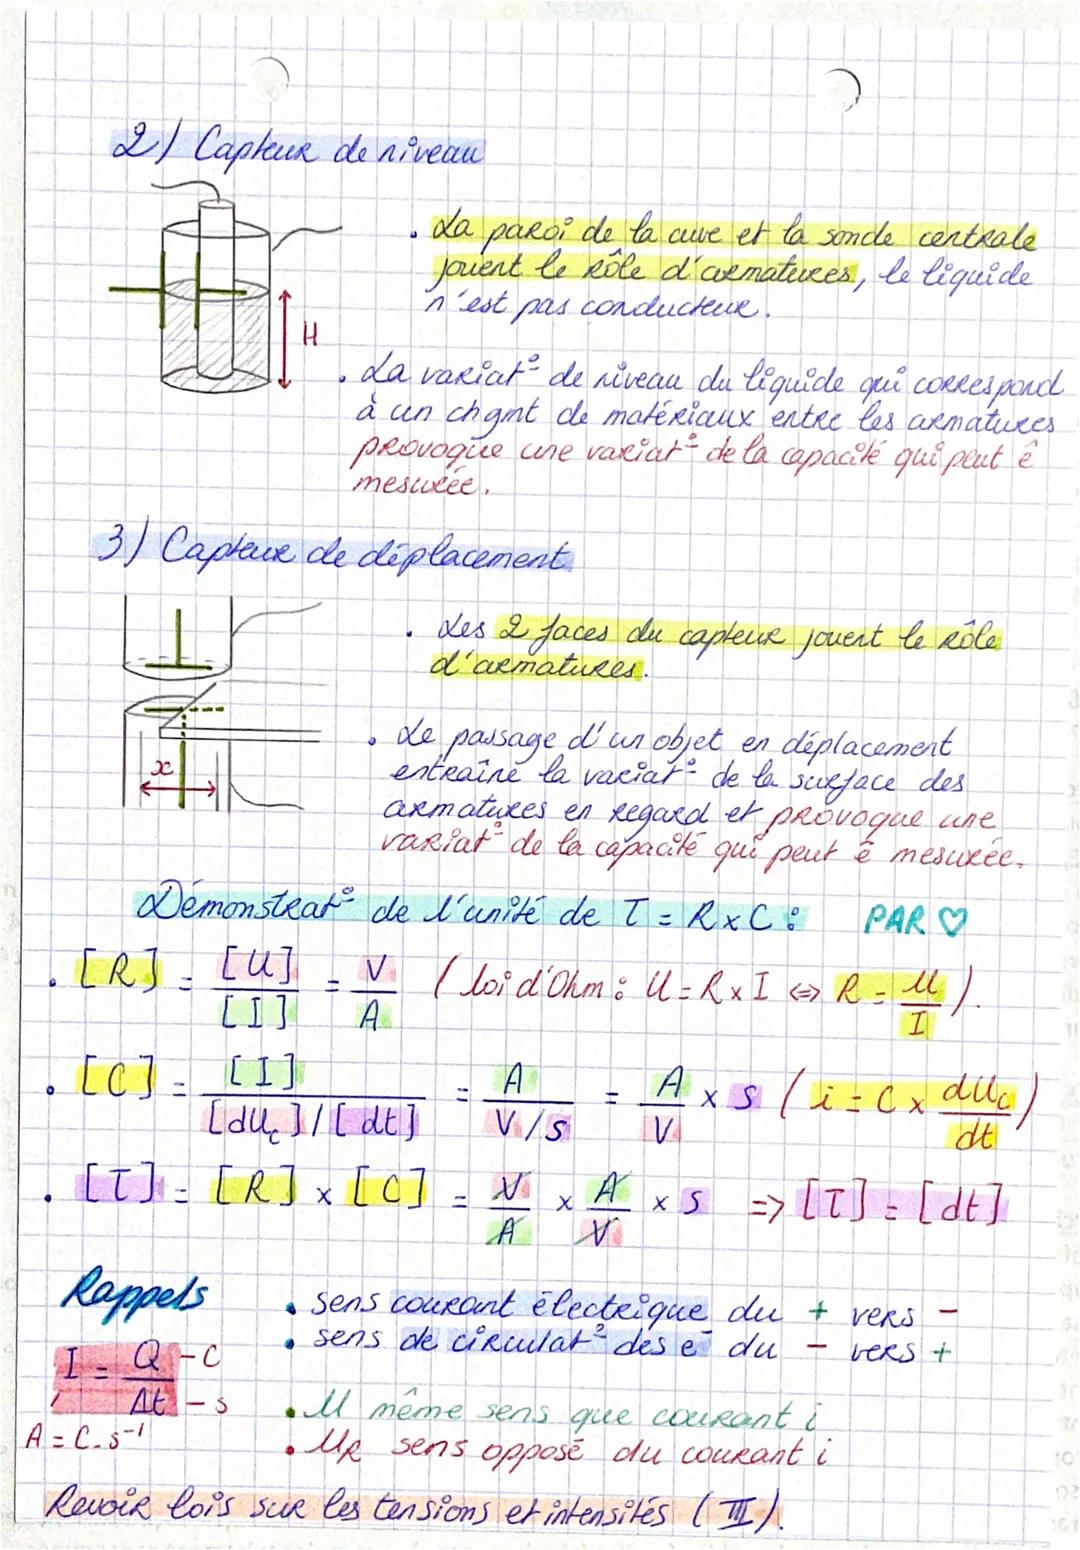 2) Capteur de niveau
. La paroi de la cuve et la sonde centrale
jouent le rôle d'armatures, le liquide
n'est pas conducteur.
H
. La variat° de niveau du liquide qui correspond
à un chgmt de matériaux entre les armatures
provoque une variat° de la capacité qui peut ê
mesurée.
3) Capteur de déplacement
. Les 2 faces du capteur jouent le rôle
d'armatures.
. Le passage d'un objet en déplacement
entraîne la variat° de la surface des
x
armatures en regard et provoque une
variat° de la capacité qui peut ê mesurée.
Démonstrat° de l'unité de τ = R x C : PAR ♡
. [R] = [U]/[I] = V/A (loi d'Ohm : U = R x I ⇔ R = U/I).
. [C] = [I]/([dUc]/[dt]) = A/(V/s) = A/V x s (i = C x dUc/dt)
. [τ] = [R] x [C] = V/A x A/V x s => [τ] = [dt]
Rappels
. sens courant électrique du + vers -
. sens de circulat° des e⁻ du - vers +
I = Q/Δt - C - s
A = C.s⁻¹
. U même sens que courant i
. UR sens opposé du courant i
Revoir lois sur les tensions et intensités (III).